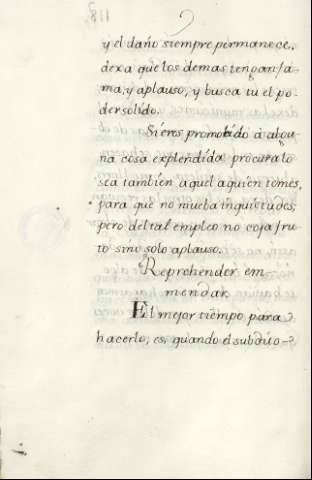 y el daño siempre permanece,
dexa que los demas tengan fa-
ma, y aplauso, y busca tu el po-
der solido.
Si eres promobido à algu-
na cosa explendida procura lo
sea tambien aquel aquien temes,
para que no mueba inquietudes,
pero del tal empleo no coja fru-
to sino solo aplauso.
Reprehender em-
mendar
El mejor tiempo para
hacerlo, es, quando el subdito